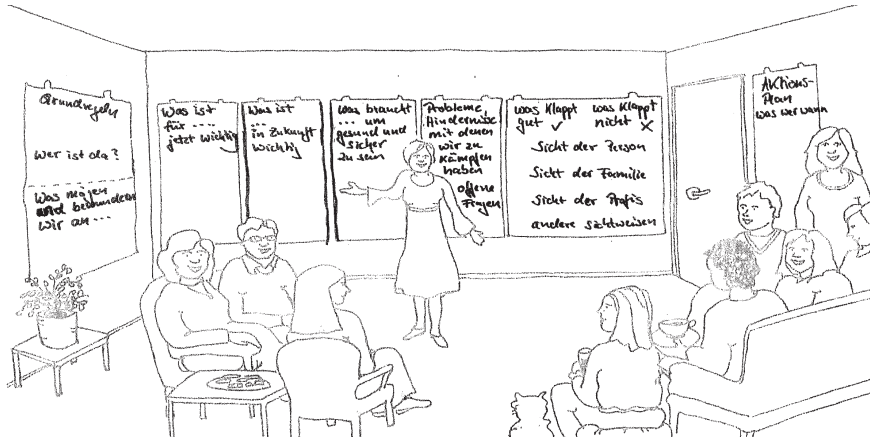 Grundregeln
Wer ist da?
Was mögen
und bewundern
wir an ...
Was ist
für ....
jetzt wichtig
Was ist
...
in Zukunft
wichtig
Was braucht
... um
gesund und
sicher
zu sein
Probleme,
Hindernisse
mit denen
wir zu
kämpfen
haben
offene
Fragen
was klappt
gut ✓
was klappt
nicht ✗
Sicht der Person
Sicht der Familie
Sicht der Profis
andere Sichtweisen
AKtions-
Plan
was wer wann